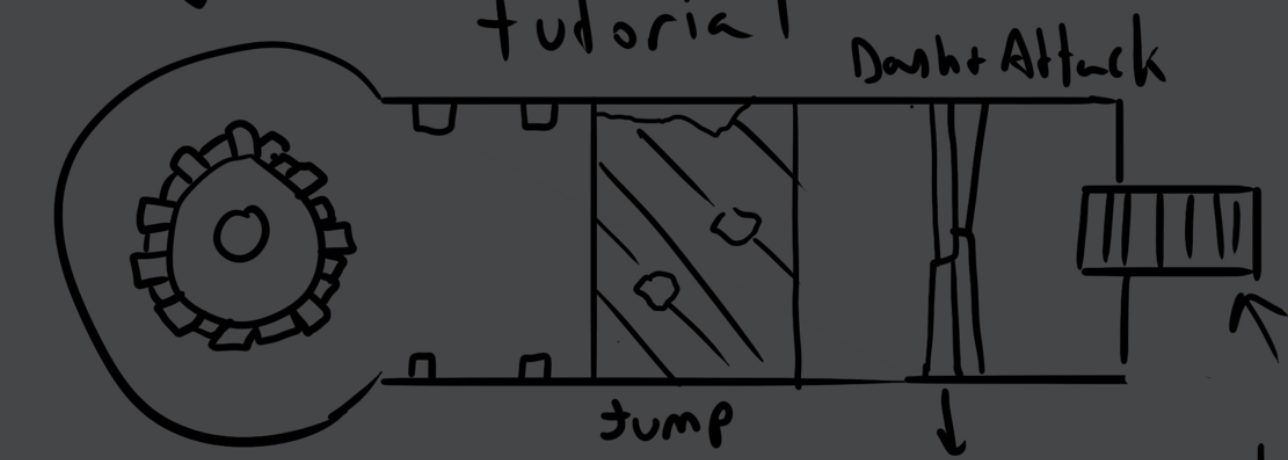 tutorial
Dash+Attack
Jump